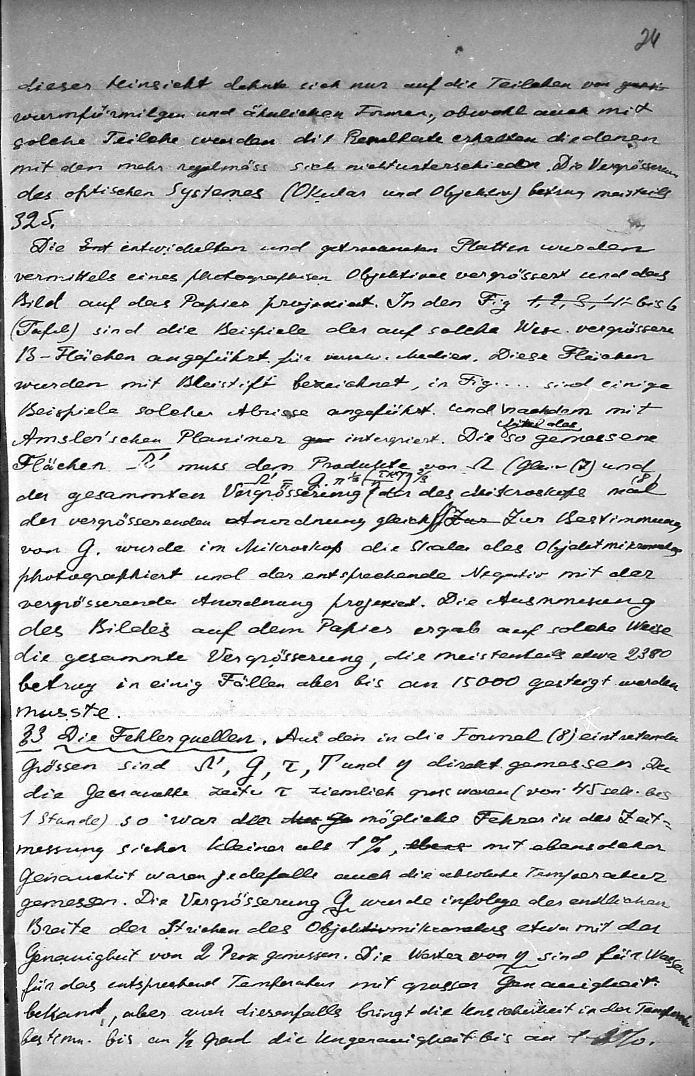 24
dieser Hinsicht dehnte sich nur auf die Teilchen von
wurmförmilgen und ähnlichen Formen, obwohl auch mit
solche Teilche wurden die Resultate erhalten die denen
mit den mehr regelmäss sich nicht unterschieden. Die Vergrösserung
des optischen Systemes (Okular und Objektiv) betrug meisteils
325.
Die entwickelten und getrockneten Platten wurden
vermittels eines photographisen Objektives vergrössert und das
Bild auf das Papier projexiert. In den Fig 1, 2, 3, bis 6
(Tafel) sind die Beispiele der auf solche Weise vergrössere
B-Flächen angeführt für Medien. Diese Flächen
wurden mit Bleistift bezeichnet, in Fig.... sind einige
Beispiele solcher Abrisse angeführt. und nachdem mit
Amsler'schen Planimer intergriert. Die so gemessene
Flächen Ω' muss dem Produkte von Ω (Gleich (7) und
der gesammten Vergrösserung (der des Mikroskops mal (8)
der vergrösserenden Anordnung gleich Zur Bestimmung
von G. wurde im Mikroskop die Skala des Objektmikrometers
photographiert und der entsprechende Negativ mit der
vergrösserende Anordnung projexiert. Die Ausmmesung
des Bildes auf dem Papier ergab auf solche Weise
die gesammte Vergrösserung, die meistenteils etwa 2380
betrug in einig Fällen aber bis an 15000 gesteigt werden
musste.
§3 Die Fehlerquellen. Aus den in die Formel (8) eintretenden
Grössen sind Ω', G, τ, T und η direkt gemessen. Da
die Gebrauchte Zeite τ ziemlich gross waren (von 45 sek. bis
1 Stunde) so war der mögliche Fehrer in der Zeit=
messung sicher kleiner als 1%, mit ebensolcher
Genauheit waren jedefalls auch die absolute Temperatur
gemessen. Die Vergrösserung G wurde infolge der endlichen
Breite der Strichen des Objektivmikrometers etwa mit der
Genauigheit von 2 Proz gemessen. Die Werter von η sind für Wasser
für das entsprechend Temperatur mit grosser Genauigheit
bekannt, aber auch diesenfalls bringt die Unsicherheit in der Temperatur
bestimm. bis an ½ Grad die Ungenauigheit bis an 1 %.